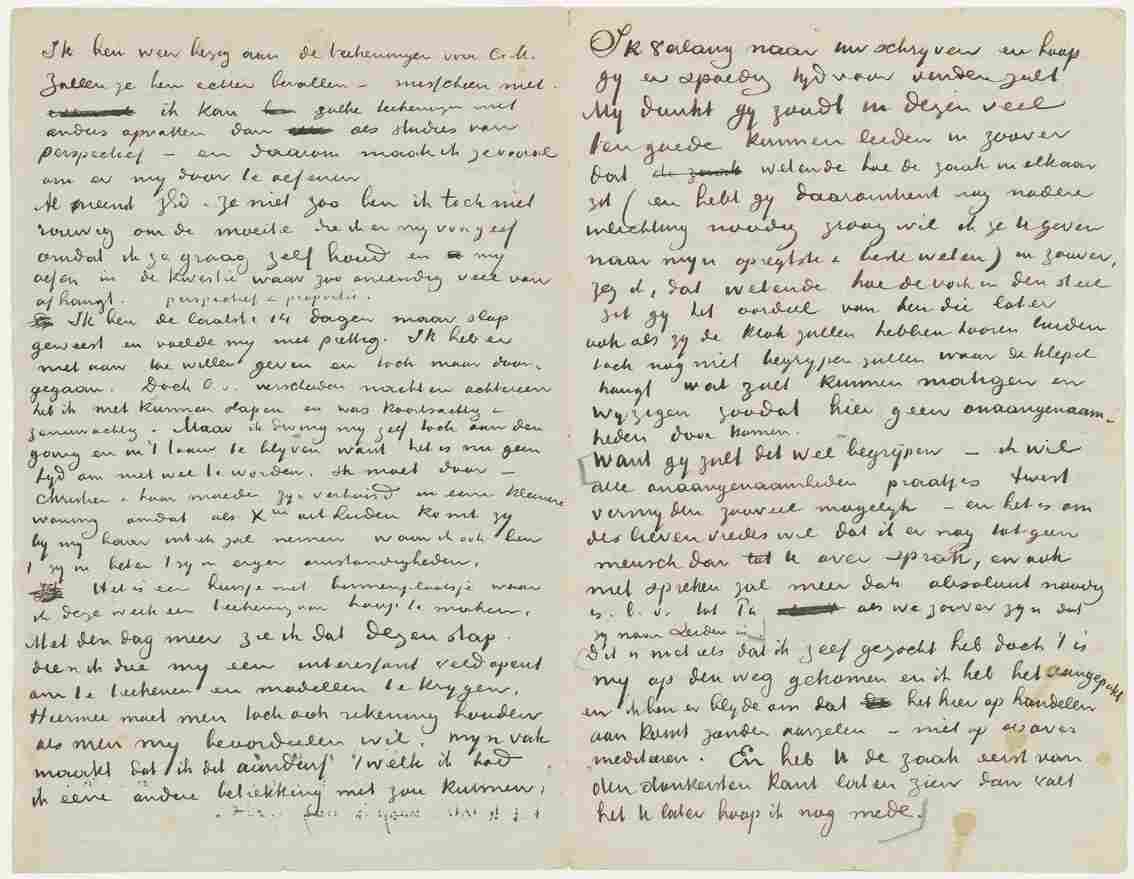 Ik ben weer bezig aan de teekeningen voor C.M.
Zullen ze hem echter bevallen – misschien niet.
ik kan zulke teekeningen niet
anders opvatten dan als studies van
perspectief – en daarom maak ik ze vooral
om er my door te oefenen
Al neemt ZEd. ze niet zoo ben ik toch niet
rouwig om de moeite die ik er my voor geef
omdat ik ze graag zelf houd en my
oefen in de kwestie waar zoo oneindig veel van
af hangt. perspectief & proportie.
Ik ben de laatste 14 dagen maar slap
geweest en voelde my niet prettig. Ik heb er
niet aan toe willen geven en toch maar door-
gegaan. Doch verscheiden nachten achtereen
heb ik niet kunnen slapen en was koortsachtig &
zenuwachtig. Maar ik dwing my zelf toch aan den
gang en in 't touw te blyven want het is nu geen
tyd om niet wel te worden. Ik moet door –
Christien & haar moeder zyn verhuisd in eene kleinere
woning omdat als Xien uit Leiden komt zy
by my haar intrek zal nemen waar ik ook ben
't zy in beter 't zy in erger omstandigheden.
Het is een huisje met binnenplaatsje waar
ik deze week een teekening van hoop te maken.
Met den dag meer zie ik dat dezen stap
dien ik doe my een interessant veld opent
om te teekenen en modellen te krygen.
Hiermee moet men toch ook rekening houden
als men my beoordeelen wil. Myn vak
maakt dat ik dit aandurf 't welk ik had
ik eene andere betrekking niet zou kunnen.
Ik verlang naar uw schryven en hoop
gy er spoedig tyd voor vinden zult
My dunkt gy zoudt in dezen veel
ten goede kunnen leiden in zoover
dat wetende hoe de zaak in elkaar
zit (en hebt gy daaromtrent nog nadere
inlichting noodig graag wil ik ze U geven
naar myn opregtste & beste weten) in zoover,
zeg ik, dat wetende hoe de vork in den steel
zit gy het oordeel van hen die later
ook als zy de klok zullen hebben hooren luiden
toch nog niet begrypen zullen waar de klepel
hangt wat zult kunnen matigen en
wyzigen zoodat hier geen onaangenaam-
heden door komen.
Want gy zult dit wel begrijpen – ik wil
alle onaangenaamheden praatjes twist
vermyden zooveel mogelyk – en het is om
des lieven vredes wil dat ik er nog tot geen
mensch dan U over sprak, en ook
niet spreken zal meer dan absoluut noodig
is. b.v. tot Pa als we zoover zyn dat
zy naar Leiden is
Dit is niet iets dat ik zelf gezocht heb doch 't is
my op den weg gekomen en ik heb het aangepakt
en ik ben er blyde om dat het hier op handelen
aan komt zonder aarzelen – niet op
mediteeren. En heb U de zaak eerst van
den donkersten kant laten zien dan valt
het U later hoop ik nog mede.